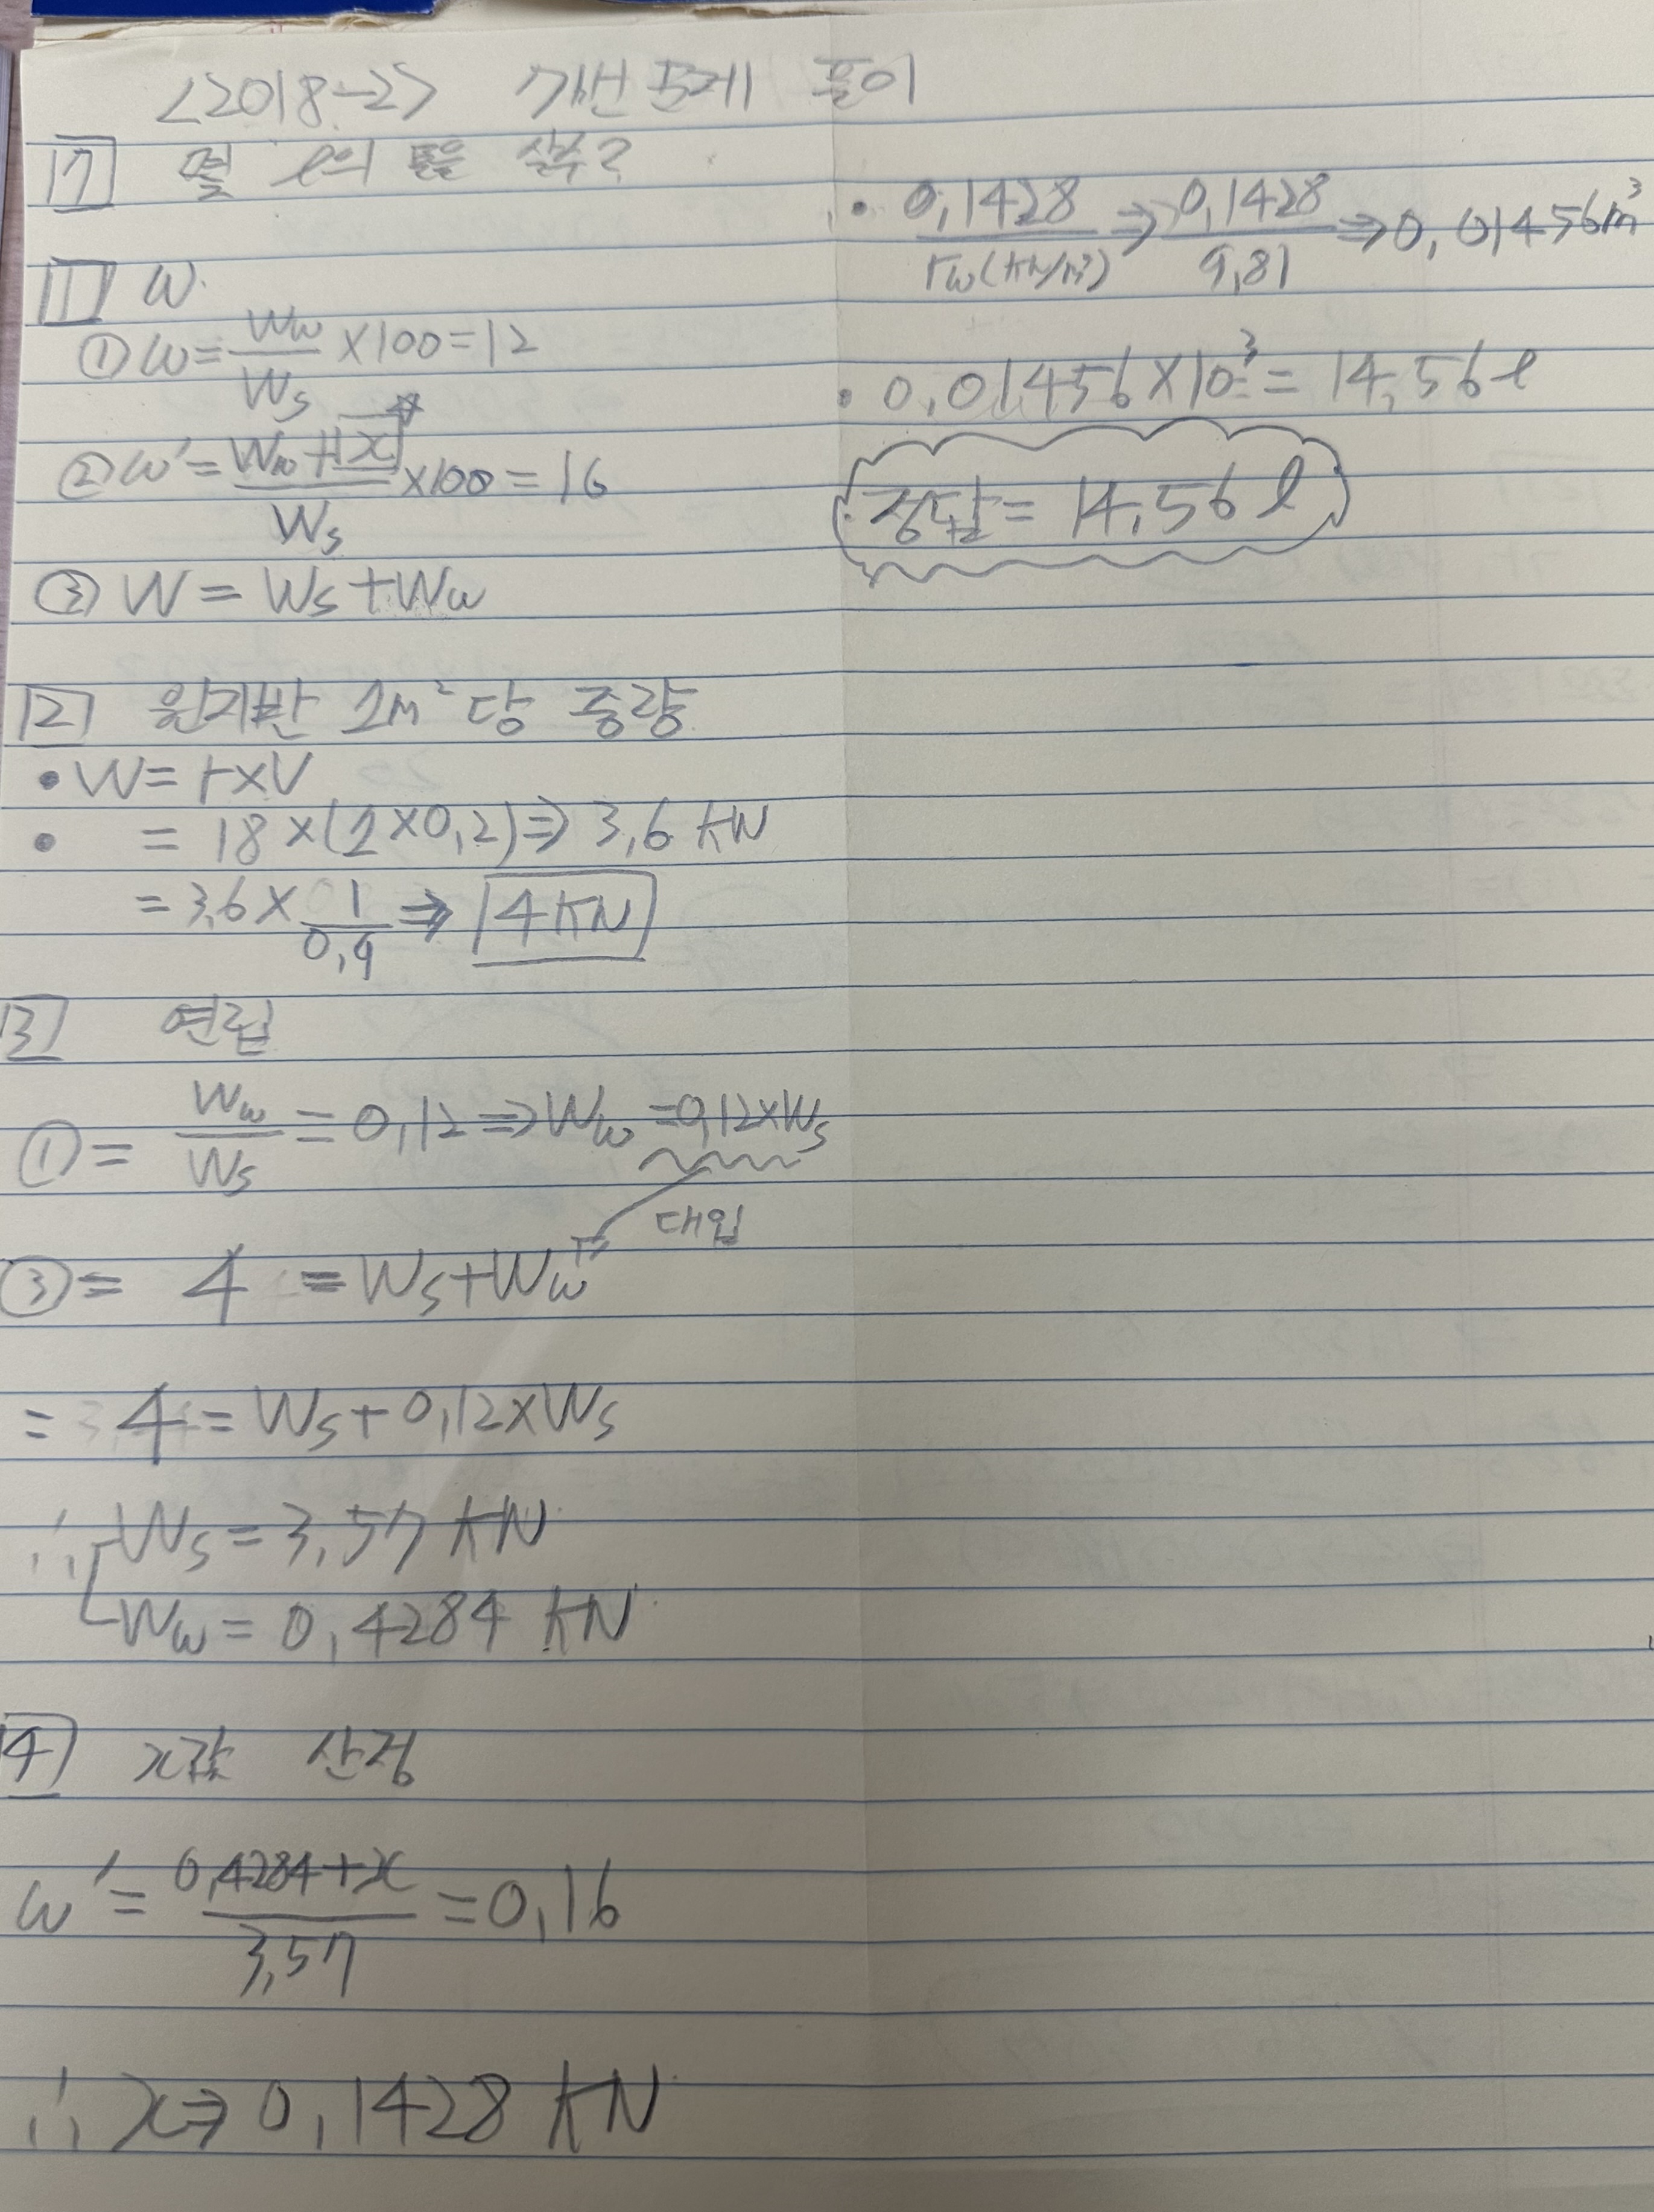 <2018-2> 기번 문제 풀이
17 몇 l의 물을 살수?
1 w
① w = Ww/Ws ×100 = 12
② w' = (Ww+x)/Ws ×100 = 16
③ W = Ws + Ww
2 원지반 1m² 당 중량
• W = r×V
• = 18×(1×0,2) ⇒ 3,6 KN
= 3,6 × 1/0,9 ⇒ 4KN
3 연립
① = Ww/Ws = 0,12 ⇒ Ww = 0,12×Ws
대입
③ = 4 = Ws+Ww
= 4 = Ws + 0,12×Ws
∴ Ws = 3,57 KN
Ww = 0,4284 KN
4 x값 산정
w' = (0,4284+x)/3,57 = 0,16
∴ x ⇒ 0,1428 KN
• 0,1428/rw(KN/m³) ⇒ 0,1428/9,81 ⇒ 0,01456m³
• 0,01456×10³ = 14,56 l
정답 = 14,56 l